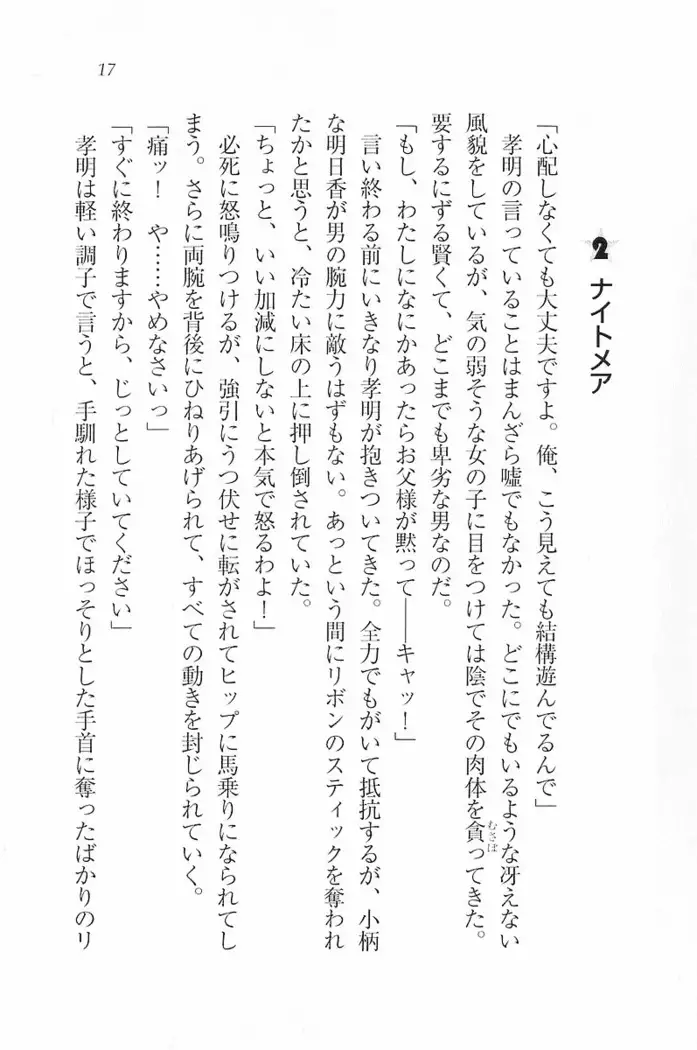 2 ナイトメア
「心配しなくても大丈夫ですよ。俺、こう見えても結構遊んでるんで」
孝明の言っていることはまんざら嘘でもなかった。どこにでもいるような冴えない
風貌をしているが、気の弱そうな女の子に目をつけては陰でその肉体を貪ってきた。
むさぼ
要するにずる賢くて、どこまでも卑劣な男なのだ。
「もし、わたしになにかあったらお父様が黙って――キャッ!」
言い終わる前にいきなり孝明が抱きついてきた。全力でもがいて抵抗するが、小柄
な明日香が男の腕力に敵うはずもない。あっという間にリボンのスティックを奪われ
たかと思うと、冷たい床の上に押し倒されていた。
「ちょっと、いい加減にしないと本気で怒るわよ!」
必死に怒鳴りつけるが、強引にうつ伏せに転がされてヒップに馬乗りになられてし
まう。さらに両腕を背後にひねりあげられて、すべての動きを封じられていく。
「痛ッ! や……やめなさいっ」
「すぐに終わりますから、じっとしていてください」
孝明は軽い調子で言うと、手馴れた様子でほっそりとした手首に奪ったばかりのリ
17